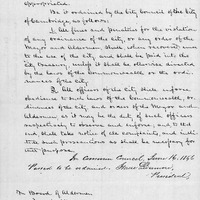 appropriated.
Be it ordained by the City Council of the City
of Cambridge, as follows:
1. All fines and penalties for the violation of
any ordinance of the City, or any order of the
Mayor and Aldermen, shall when recovered, inure
to the use of the City and shall be paid into the
City Treasury, unless it shall be otherwise directed
by the laws of the Commonwealth or the ordi-
nances of the City.
2. All officers of the City shall inforce
obedience to such laws of the Commonwealth, or-
dinances of the City, and orders of the Mayor and
Aldermen as it may be the duty of such officers
respectively to observe and inforce, and to that
end, shall take notice of all complaints, and insti-
tute such prosecutions as shall be necessary for
that purpose.
In Common Council, June 16. 1846
Passed to be ordained.
President.
In Board of Aldermen,